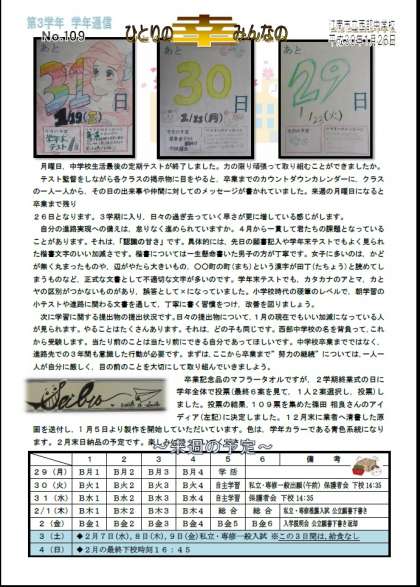 第3学年 学年通信
No.109
ひとりの幸みんなの
江南市立西部中学校
平成30年1月26日
あと
31
日
1/19(金)
学年末
テスト
あと
30
日
1/22(月)
あと
29
日
1/23(火)
月曜日、中学校生活最後の定期テストが終了しました。力の限り頑張って取り組むことができましたか。
テスト監督をしながら各クラスの掲示物に目をやると、卒業までのカウントダウンカレンダーに、クラス
の一人一人から、その日の出来事や仲間に対してのメッセージが書かれていました。来週の月曜日になると
卒業まで残り
26日となります。3学期に入り、日々の過ぎ去っていく早さが更に増している感じがします。
自分の進路実現への備えは、怠りなく進められていますか。4月から一貫して君たちの課題となっている
ことがあります。それは、「認識の甘さ」です。具体的には、先日の願書記入や学年末テストでもよく見られ
た楷書文字のいい加減さです。楷書については一生懸命書いた男子の方が丁寧です。女子に多いのは、かど
が無く丸まったものや、辺がやたら大きいもの、〇〇町の町(まち)という漢字が田丁(たちょう)と読めてし
まうものなど、正式な文書として不適切な文字が多いのです。学年末テストでも、カタカナのアとマ、カと
ヤの区別がつかないものがあり、誤答として×になっていました。小学校時代の硬筆のレベルで、朝学習の
小テストや進路に関わる文書を通して、丁寧に書く習慣をつけ、改善を図りましょう。
次に学習に関する提出物の提出状況です。日々の提出物について、1月の現在でもいい加減になっている人
が見られます。やることはたくさんあります。それは、どの子も同じです。西部中学校の名を背負って、これ
から受験します。当たり前のことは当たり前にできる自分であってほしいです。中学校卒業まではなく、
進路先での3年間も意識した行動が必要です。まずは、ここから卒業まで"努力の継続"については、一人一
人が自分に厳しく、目の前のことを大切にして取り組んでいきましょう。
Seibu
卒業記念品のマフラータオルですが、2学期終業式の日に
学年全体で投票(最終6案を見て、1人2案選択し、投票)し
ました。投票の結果、109票を集めた篠田 相良さんのアイ
ディア(左記)に決定しました。12月末に業者へ清書した原
図を送付し、1月5日より製作を開始していただいています。色は、学年カラーである青色系統になり
ます。2月末日納品の予定です。
～来週の予定～
1 2 3 4 5 6 備 考
29(月) B月1 B月2 B月3 B月4 学 活
30(火) B火1 B火2 B火3 B火4 自主学習 私立・専修一般出願(午前) 保護者会 下校14:35
31(水) B水1 B水2 B水3 B水4 自主学習 保護者会 下校14:35
2/1(木) B木1 B木2 B木3 B木4 総 合 総 合 公立願書下書き
2(金) B金1 B金2 B金3 B金4 B金5 B金6 入学説明会 公立願書下書き返却
3(土) ◆2月7日(水),8日(木),9日(金)私立・専修一般入試 ※この3日間は、給食なし
4(日) ◆2月の最終下校時刻16:45